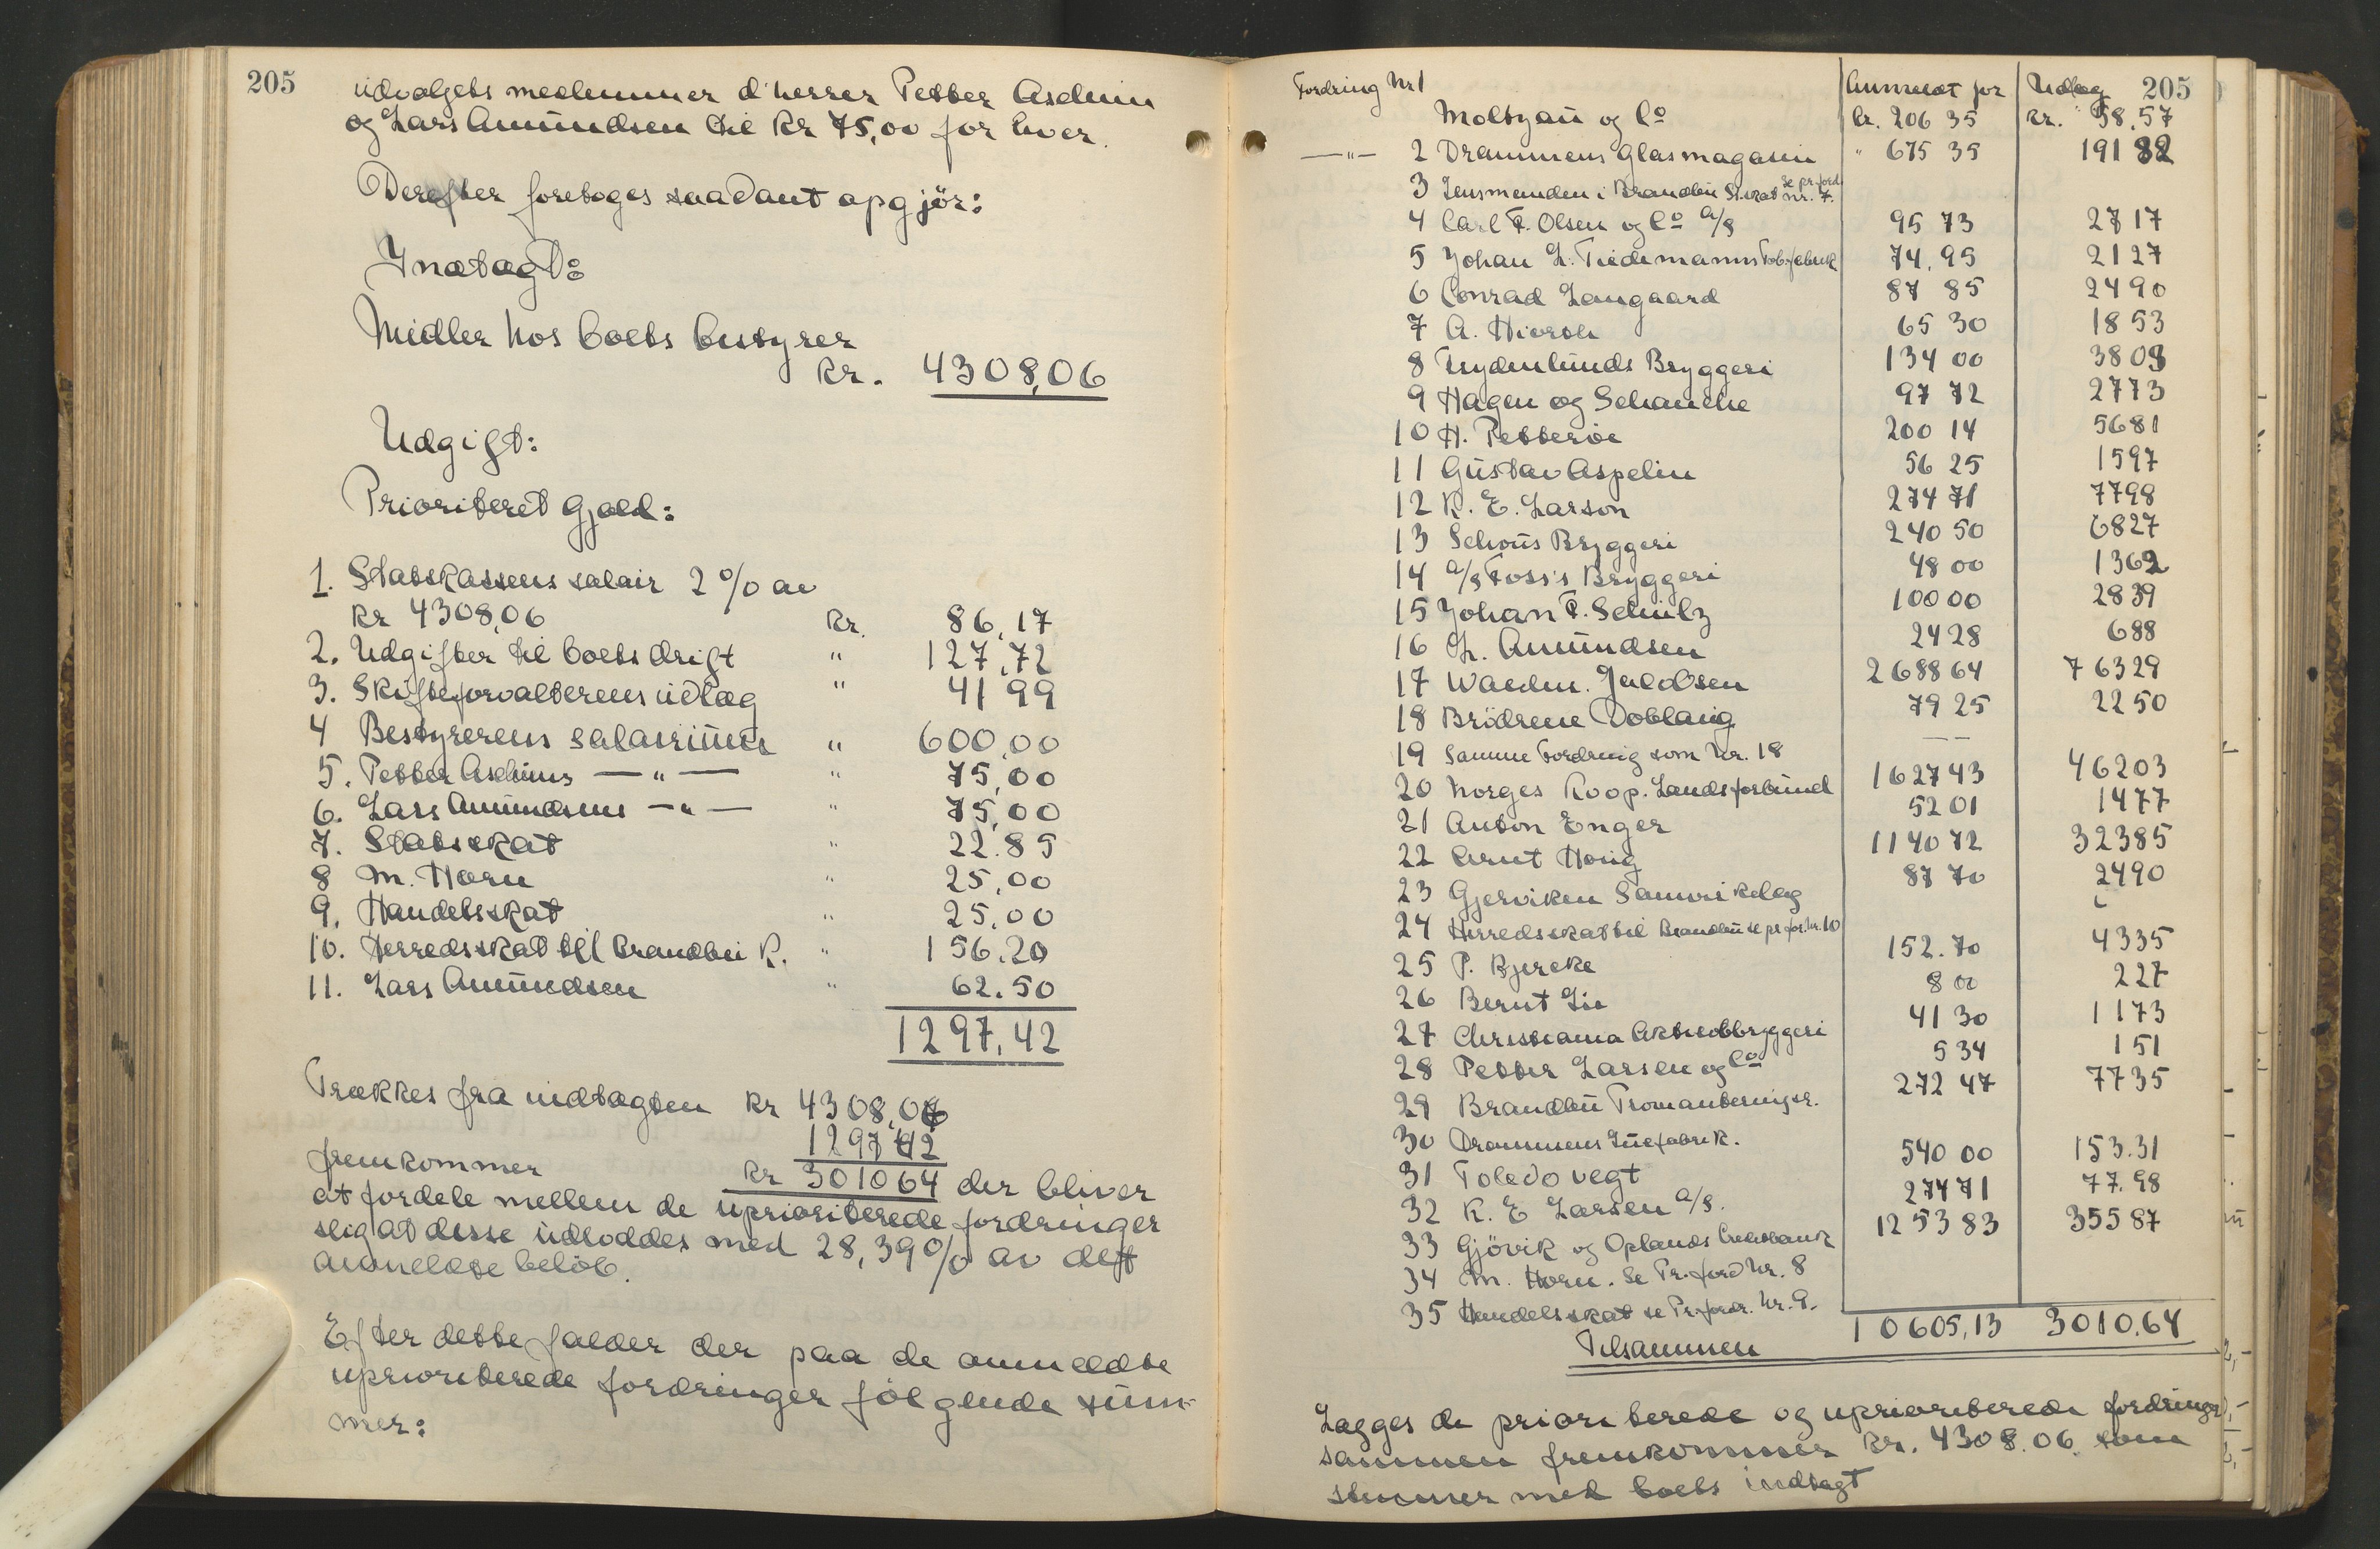 205
udvalgets medlemmer d'herrer Petter Aschim
og Lars Amundsen til kr 75,00 for hver.
Derefter foretoges saadant opgjör:
Indtægt:
Midler hos boets bestyrer
kr. 4308,06
Udgift:
Prioriteret gjæld:
1. Statskassens salair 2 % av
kr 4308,06 kr. 86,17
2. Udgifter til boets drift " 127,72
3. Skifteforvalterens udlæg " 41 99
4 Bestyrerens salairium " 600,00
5. Petter Aschims —"— " 75,00
6. Lars Amundsens —"— " 75,00
7. Statsskat " 22.85
8 M. Horn " 25,00
9. Handelsskat " 25,00
10. Herredsskat til Brandbu K. " 156.20
11. Lars Amundsen " 62.50
1297,42
Trækkes fra indtægten kr 4308,06
1297 42
fremkommer kr 3010 64 der bliver
at fordele mellem de uprioriterede fordringer
slig at disse udloddes med 28,39 % av det
anmeldte belöb.
Efter dette falder der paa de anmeldte
uprioriterede fordringer fölgende sum-
mer:
Fordring Nr 1 Anmeldt for Udlæg 205
Moltzau og Co kr. 206 35 kr. 58.57
—"— 2 Drammens Glasmagasin " 675 35 191 82
3 Lensmanden i Brandbu St.skat se pr. ford. nr. 7.
4 Carl F. Olsen og Co A/S 95 73 27 17
5 Johan L. Tiedemanns Tob.fabrik 74,95 21 27
6 Conrad Langaard 87 85 24 90
7 A. Hiorth 65 30 18 53
8 Frydenlunds Bryggeri 134 00 38 03
9 Hagen og Schanche 97 72 27 73
10 H. Petterøe 200 14 56 81
11 Gustav Aspelin 56 25 15 97
12 K. E. Larson 274 71 77 98
13 Schous Bryggeri 240 50 68 27
14 A/S Foss's Bryggeri 48 00 13 62
15 Johan F. Schulz 100 00 28 39
16 L. Amundsen 24 28 6 88
17 Waldm. Jacobsen 2688 64 763 29
18 Brödrene Doblaug 79 25 22 50
19 Samme Fordring som Nr. 18 — —
20 Norges Koop. Landsforbund 1627 43 462 03
21 Anton Enger 52 01 14 77
22 Arnt Honig 1140 72 323 85
23 Gjerviken Samvirkelag 87 70 24 90
24 Herredsskat til Brandbu se pr. for. Nr. 10
25 P. Bjercke 152.70 43 35
26 Bernt Lie 8 00 2 27
27 Christiania Aktieölbryggeri 41 30 11 73
28 Petter Larsen og Co 5 34 1 51
29 Brandbu 272 47 77 35
30 Drammens Luefabrik.
31 Toledo vegt 540 00 153.31
32 K. E Larsen A/S. 274 71 77.98
33 Gjövik og Oplands Creditbank 1253 83 355 87
34 M. Horn. Se Pr. ford Nr. 8
35 Handelsskat se Pr. fordr. Nr. 9.
Tilsammen 10605,13 3010.64
Lægges de prioriterede og uprioriterede fordringer
sammen fremkommer kr. 4308.06 som
stemmer med boets indtægt